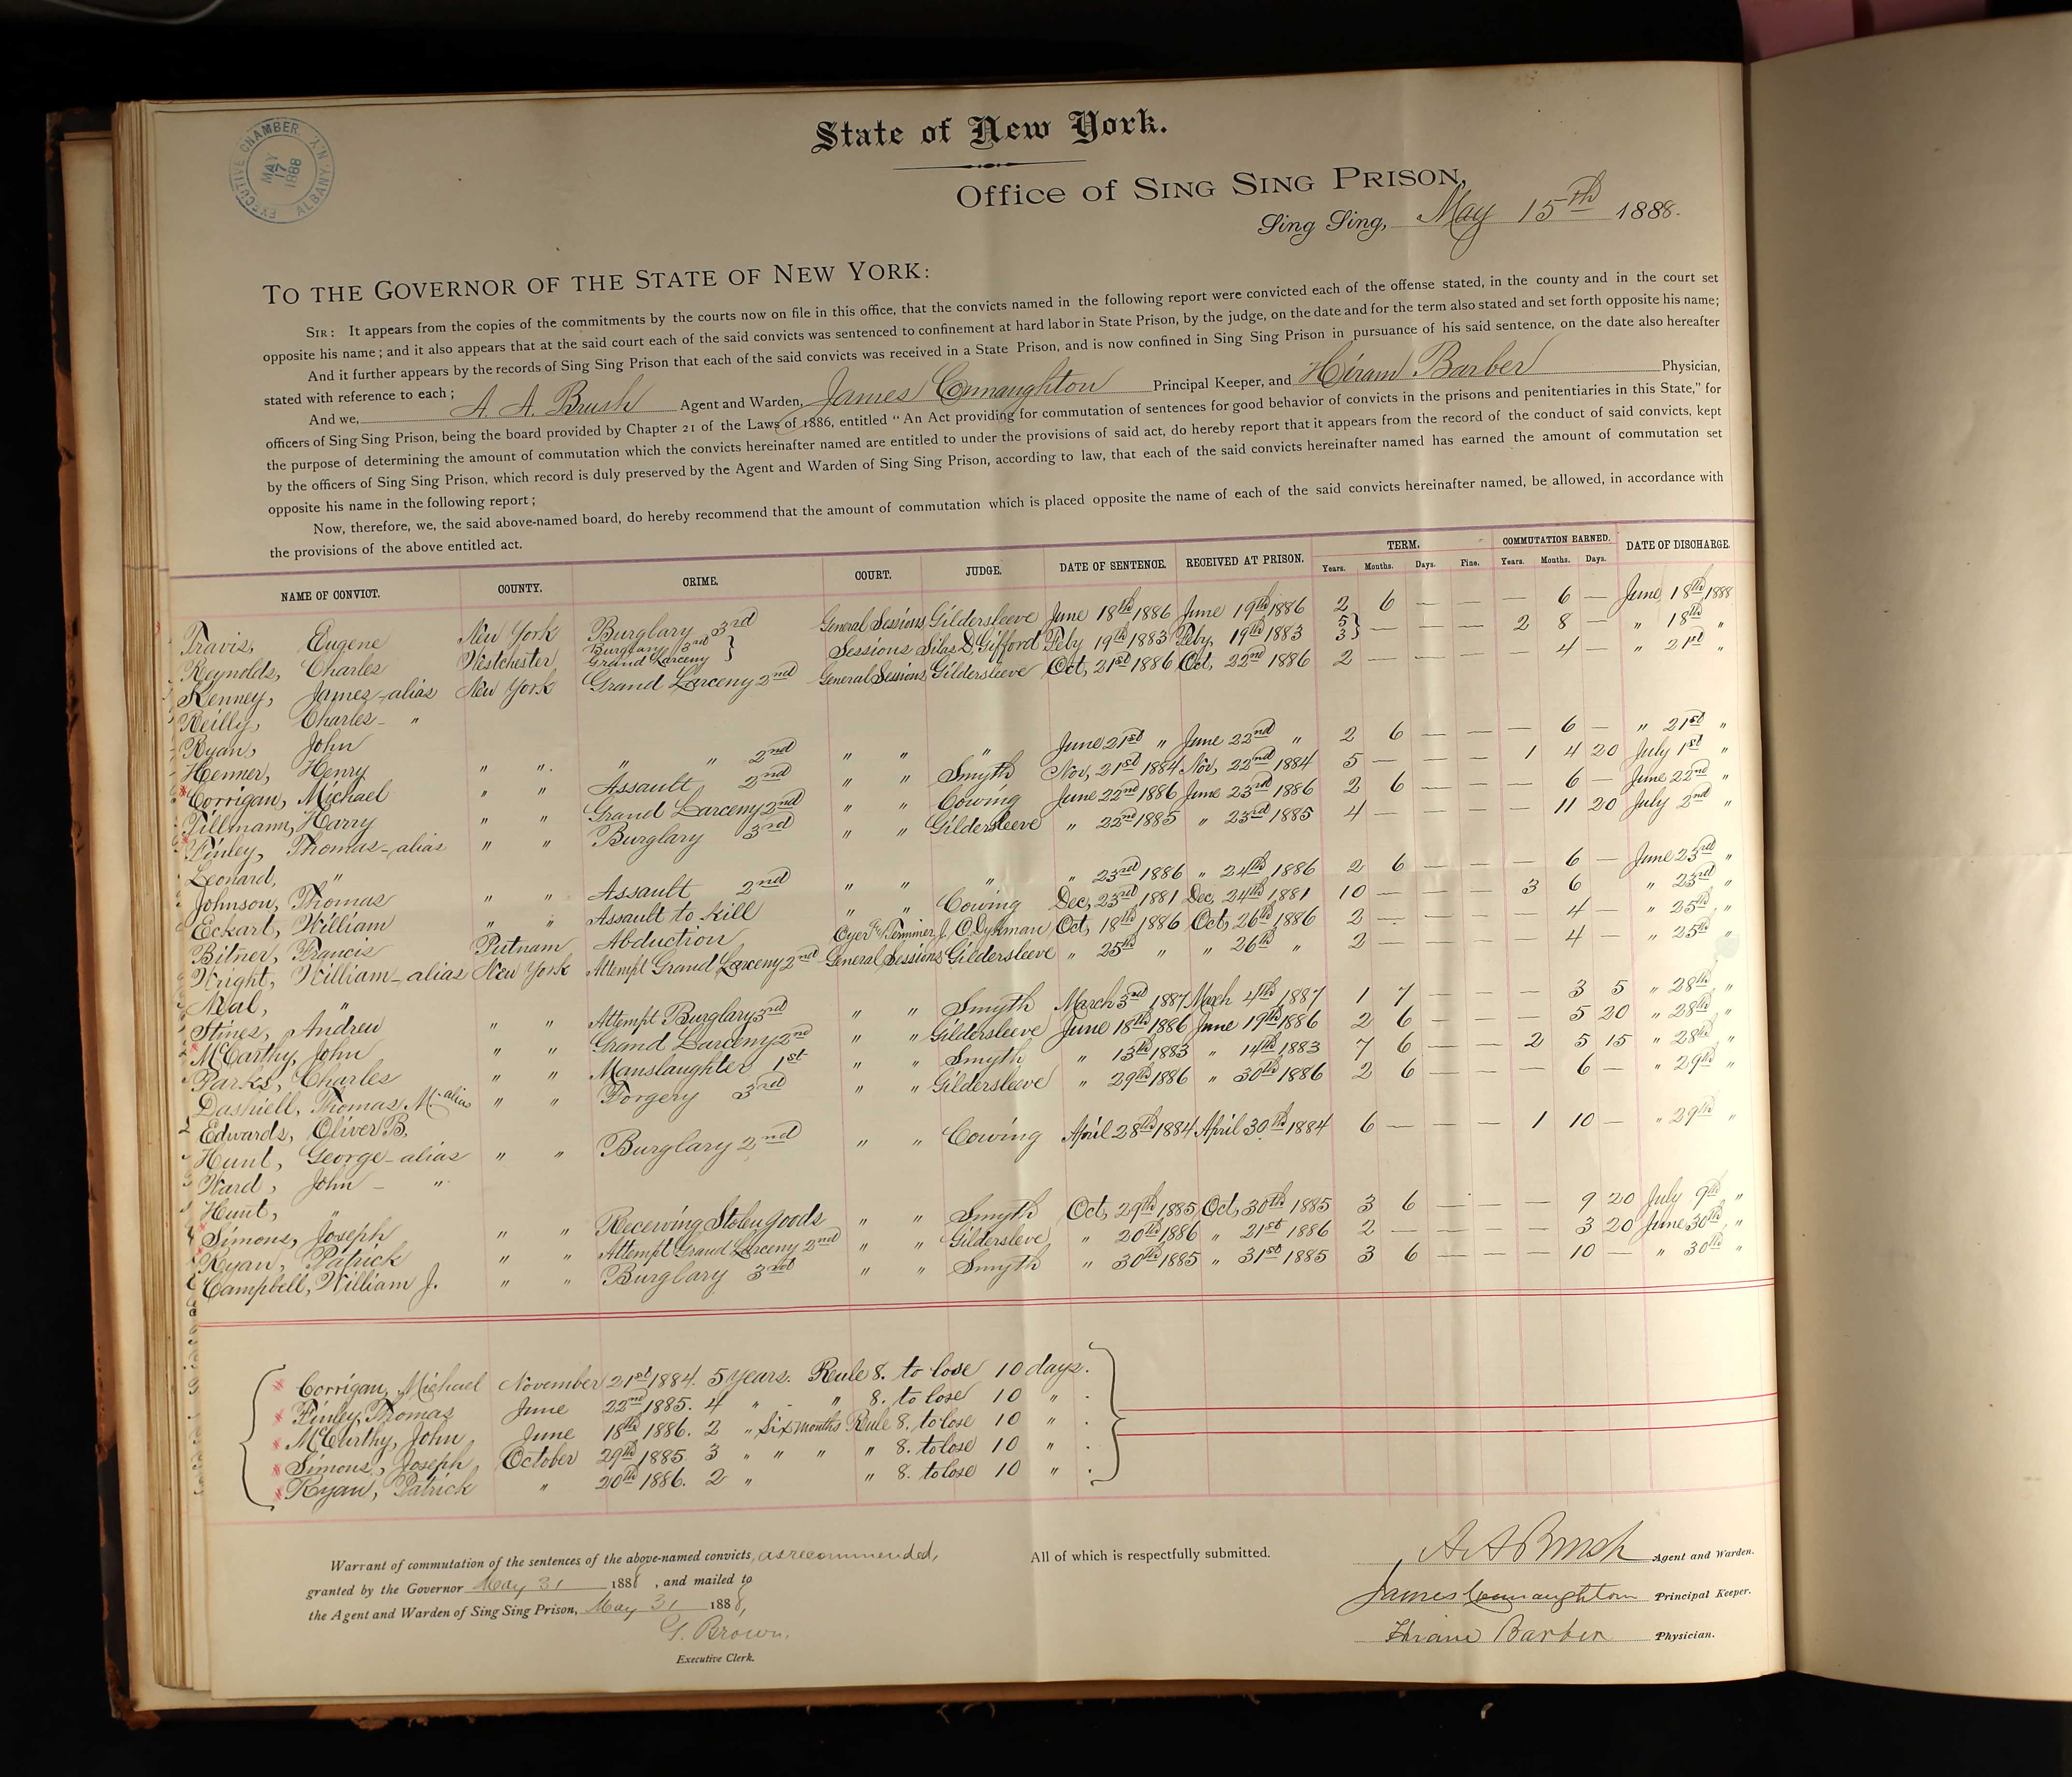 EXECUTIVE CHAMBER. ALBANY, N.Y.
MAY
17
1888
State of New York.
Office of Sing Sing Prison,
Sing Sing, May 15th 1888.
To the Governor of the State of New York:
Sir: It appears from the copies of the commitments by the courts now on file in this office, that the convicts named in the following report were convicted each of the offense stated, in the county and in the court set
opposite his name; and it also appears that at the said court each of the said convicts was sentenced to confinement at hard labor in State Prison, by the judge, on the date and for the term also stated and set forth opposite his name;
And it further appears by the records of Sing Sing Prison that each of the said convicts was received in a State Prison, and is now confined in Sing Sing Prison in pursuance of his said sentence, on the date also hereafter
stated with reference to each;
And we, A. A. Brush Agent and Warden, James Connaughton Principal Keeper, and Hiram Barber Physician,
officers of Sing Sing Prison, being the board provided by Chapter 21 of the Laws of 1886, entitled "An Act providing for commutation of sentences for good behavior of convicts in the prisons and penitentiaries in this State," for
the purpose of determining the amount of commutation which the convicts hereinafter named are entitled to under the provisions of said act, do hereby report that it appears from the record of the conduct of said convicts, kept
by the officers of Sing Sing Prison, which record is duly preserved by the Agent and Warden of Sing Sing Prison, according to law, that each of the said convicts hereinafter named has earned the amount of commutation set
opposite his name in the following report;
Now, therefore, we, the said above-named board, do hereby recommend that the amount of commutation which is placed opposite the name of each of the said convicts hereinafter named, be allowed, in accordance with
the provisions of the above entitled act.
NAME OF CONVICT. COUNTY. CRIME. COURT. JUDGE. DATE OF SENTENCE. RECEIVED AT PRISON. TERM. COMMUTATION EARNED. DATE OF DISCHARGE.
Years. Months. Days. Fine. Years. Months. Days.
Travis, Eugene New York Burglary 3rd General Sessions Gildersleeve June 18th 1886 June 19th 1886 2 6 — — — 6 — June 18th 1888
Reynolds, Charles Westchester Burglary 3rd Grand Larceny } Sessions Silas D. Gifford Feby 19th 1883 Feby, 19th 1883 5 3 } — — — 2 8 — " 18th "
Kenney, James - alias New York Grand Larceny 2nd General Sessions Gildersleeve Oct, 21st 1886 Oct, 22nd 1886 2 — — — — 4 — " 21st "
Reilly, Charles - "
Ryan, John
Henner, Henry " " " " 2nd " " " June 21st " June 22nd " 2 6 — — — 6 — " 21st "
* Corrigan, Michael " " Assault 2nd " " Smyth Nov, 21st 1884 Nov, 22nd 1884 5 — — — 1 4 20 July 1st "
Tillmann, Harry " " Grand Larceny 2nd " " Cowing June 22nd 1886 June 23rd 1886 2 6 — — — 6 — June 22nd "
* Finley, Thomas - alias " " Burglary 3rd " " Gildersleeve " 22nd 1885 " 23rd 1885 4 — — — — 11 20 July 2nd "
Leonard, "
Johnson, Thomas " " Assault 2nd " " " " 23rd 1886 " 24th 1886 2 6 — — — 6 — June 23rd "
Eckart, William " " Assault to kill " " Cowing Dec, 23rd 1881 Dec, 24th 1881 10 — — — 3 6 " 23rd "
Bitner, Francis Putnam Abduction Oyer & Terminer J. O. Dykman Oct, 18th 1886 Oct, 26th 1886 2 — — — — 4 — " 25th "
Wright, William - alias New York Attempt Grand Larceny 2nd General Sessions Gildersleeve " 25th " " 26th " 2 — — — — 4 — " 25th "
Neal, "
Stines, Andrew " " Attempt Burglary 3rd " " Smyth March 3rd 1887 March 4th 1887 1 7 — — — 3 5 " 28th "
* McCarthy, John " " Grand Larceny 2nd " " Gildersleeve June 18th 1886 June 19th 1886 2 6 — — — 5 20 " 28th "
Parks, Charles " " Manslaughter 1st " " Smyth " 13th 1883 " 14th 1883 7 6 — — 2 5 15 " 28th "
Dashiell, Thomas M - alias " " Forgery 3rd " " Gildersleeve " 29th 1886 " 30th 1886 2 6 — — — 6 — " 29th "
Edwards, Oliver B.
Hunt, George - alias " " Burglary 2nd " " Cowing April 28th 1884 April 30th 1884 6 — — — 1 10 — " 29th "
Ward, John - "
Hunt, "
* Simons, Joseph " " Receiving Stolen goods " " Smyth Oct, 29th 1885 Oct, 30th 1885 3 6 — — — 9 20 July 9th "
* Ryan, Patrick " " Attempt Grand Larceny 2nd " " Gildersleve " 20th 1886 " 21st 1886 2 — — — — 3 20 June 30th "
Campbell, William J. " " Burglary 3rd " " Smyth " 30th 1885 " 31st 1885 3 6 — — — 10 — " 30th "
* Corrigan, Michael November 21st 1884. 5 years. Rule 8. to lose 10 days.
* Finley, Thomas June 22nd 1885. 4 " - " 8. to lose 10 " .
* McCarthy, John, June 18th 1886. 2 " Six months Rule 8. to lose 10 " .
* Simons, Joseph, October 29th 1885. 3 " " " " 8. to lose 10 " .
* Ryan, Patrick " 20th 1886. 2 " " 8. to lose 10 " .
Warrant of commutation of the sentences of the above-named convicts, as recommended,
granted by the Governor May 31 1888, and mailed to
the Agent and Warden of Sing Sing Prison, May 31 1888,
G. Brown.
Executive Clerk.
All of which is respectfully submitted.
A A Brush Agent and Warden.
James Connaughton Principal Keeper.
Hiram Barber Physician.